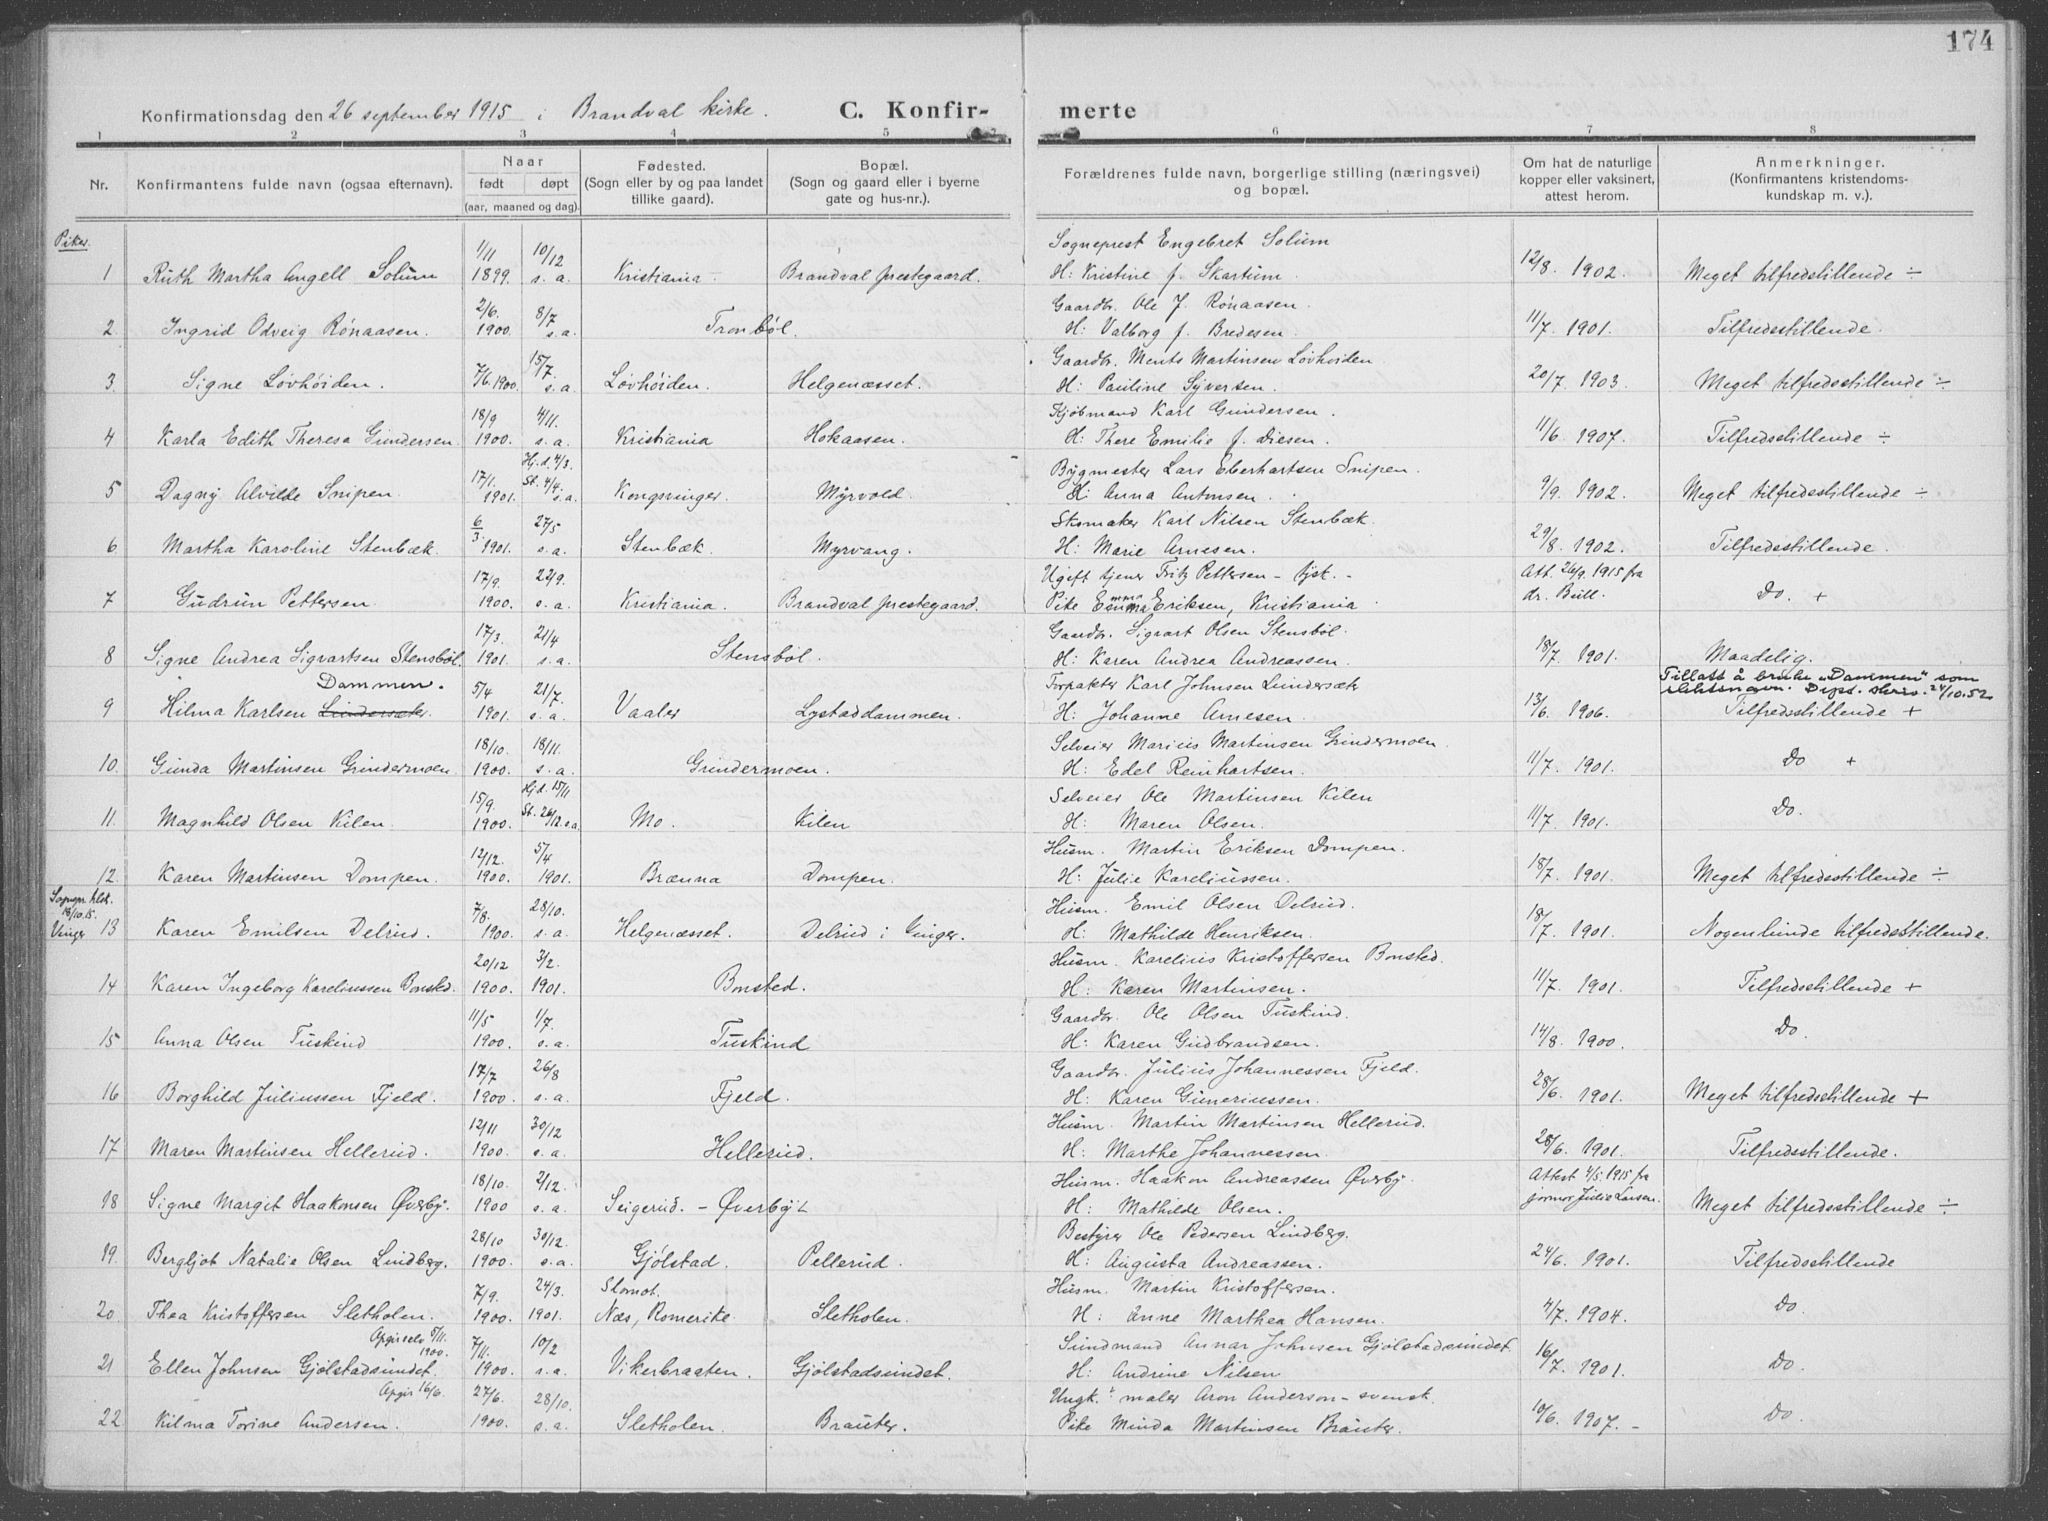 174
Konfirmationsdag den 26 september 1915 i Brandval kirke. C. Konfirmerte
1 2 3 4 5 6 7 8
Nr. Konfirmantens fulde navn (ogsaa efternavn). Naar født døpt (aar, maaned og dag). Fødested. (Sogn eller by og paa landet tillike gaard). Bopæl. (Sogn og gaard eller i byerne gate og hus-nr.). Forældrenes fulde navn, borgerlige stilling (næringsvei) og bopæl. Om hat de naturlige kopper eller vaksinert, attest herom. Anmerkninger. (Konfirmantens kristendomskundskap m. v.).
Piker.
1/11 10/12 Sogneprest Engebret Solum
1 Ruth Martha Angell Solum 1899. s. a. Kristiania Brandval prestegaard. H: Kristine f. Skartum. 12/8. 1902. Meget tilfredsstillende ÷
2/6. 8/7 Gaardbr. Ole J. Rønaasen.
2. Ingrid Odveig Rønaasen. 1900. s. a. Tronbøl. H: Valborg f. Bredesen. 11/7. 1901. Tilfredsstillende.
15/7. Gaardbr. Ments Martinsen Løvhøiden
3. Signe Løvhøiden. 7/6. 1900. s. a. Løvhøiden. Helgenæsset. H: Pauline Syversen. 20/7. 1903. Meget tilfredsstillende ÷
18/9 4/11. Kjøbmand Karl Gundersen.
4 Karla Edith Theresa Gundersen. 1900. s. a. Kristiania Hokaasen. H: There Emilie f. Diesen. 11/6. 1907. Tilfredsstillende ÷
17/1. Hj. d. 4/3. St. 4/4. Bygmester Lars Eberhartsen Snipen.
5 Dagny Alvilde Snipen. 1901. s. a. Kongsvinger Myrvold. H: Anna Antonsen. 9/9. 1902. Meget tilfredsstillende ÷
6/3. 27/5 Skomaker Karl Nilsen Stenbæk.
6. Martha Karoline Stenbæk. 1901. s. a. Stenbæk. Myrvang. H: Marie Arnesen. 29/8. 1902. Tilfredsstillende.
17/9. 22/9. Ugift tjener Fritz Pettersen – tysk. – Att. 26/9. 1915 fra
7 Gudrun Pettersen. 1900. s. a. Kristiania. Brandval prestegaard. Pike Emma Eriksen, Kristiania. dr. Bull. Do. +
17/3. 21/4 Gaardbr. Sigvart Olsen Stensbøl.
8 Signe Andrea Sigvartsen Stensbøl. 1901. s. a. Stensbøl. H: Karen Andrea Andreassen. 18/7. 1901. Maadelig.
Dammen. 5/4 21/7. Forpakter Karl Johnsen Lundersæter Tillatt å bruke „Dammen" som slektsnavn. Dept. skriv. 24/10. 52
9 Hilma Karlsen Lundersæter. 1901. s. a. Vaaler Lystaddammen. H: Johanne Arnesen. 13/6. 1906. Tilfredsstillende +
18/10. 18/11. Selveier Marius Martinsen Grindermoen.
10. Gunda Martinsen Grindermoen. 1900. s. a. Grindermoen. H: Edel Reinhartsen. 11/7. 1901. Do +
15/9. Hj. d. 15/11 St. 26/12. s. a. Selveier Ole Martinsen Kilen
11. Magnhild Olsen Kilen. 1900. Mo. Kilen H: Maren Olsen. 11/7. 1901. Do.
12/12. 5/4 Husm. Martin Eriksen Dompen.
12. Karen Martinsen Dompen. 1900. 1901. Brænna Dompen. H: Julie Kareliussen. 18/7. 1901. Meget tilfredsstillende ÷
18/10. 15. 7/8. 28/10. Husm. Emil Olsen Delrud.
Vinger 13 Karen Emilsen Delrud. 1900. s. a. Helgenæsset. Delrud i Vinger. H: Mathilde Henriksen. 18/7. 1901. Nogenlunde tilfredsstillende.
20/12 3/2. Husm. Karelius Kristoffersen Bonsted.
14 Karen Ingeborg Kareliussen Bonsted. 1900. 1901. Bonsted. H: Karen Martinsen. 11/7. 1901. Tilfredsstillende +
11/5 1/7. Gaardbr. Ole Olsen Tuskind.
15 Anna Olsen Tuskind 1900. s. a. Tuskind H: Karen Gudbrandsen. 14/8. 1900. Do.
17/7 26/8 Gaardbr. Julius Johannessen Fjeld.
16 Borghild Juliussen Fjeld. 1900. s. a. Fjeld. H: Karen Guneriussen. 28/6. 1901. Meget tilfredsstillende +
12/11 30/12 Husm. Martin Martinsen Hellerud.
17 Maren Martinsen Hellerud. 1900. s. a. Hellerud. H: Marthe Johannessen. 28/6. 1901. Tilfredsstillende.
18/10. 2/12. Husm. Haakon Andreassen Øverby. Attest 4/5. 1915 fra
18 Signe Margit Haakonsen Øverby. 1900 s. a. Seigerud. – Øverby H: Mathilde Olsen. jormor Julie Larsen. Meget tilfredsstillende ÷
28/10 30/12. Bestyrer Ole Pedersen Lindberg.
19. Bergljot Natalie Olsen Lindberg. 1900. s. a. Gjølstad. Pellerud. H: Augusta Andreassen. 24/6. 1901. Tilfredsstillende
7/9. 24/3. Slomot. Husm. Martin Kristoffersen.
20. Thea Kristoffersen Sletholen. 1900. 1901. Næs, Romerike. Sletholen. H: Anne Marthea Hansen. 4/7. 1904. Do.
Opgir selv 5/11. 1900. 7/11. 10/2 Sundmand Annar Johnsen Gjølstadsundet.
21 Ellen Johnsen Gjølstadsundet. 1900. s. a. Vikerbraaten. Gjølstadsundet. H: Andrine Nilsen 16/7. 1901. Do.
Opgir 16/6. 27/6. 28/10. Ungk. maler Aron Anderson – svensk.
22 Kilma Torine Andersen. 1900. s. a. Sletholen. Brauter. Pike Minda Martinsen Brauter. 10/6. 1907. – Do.